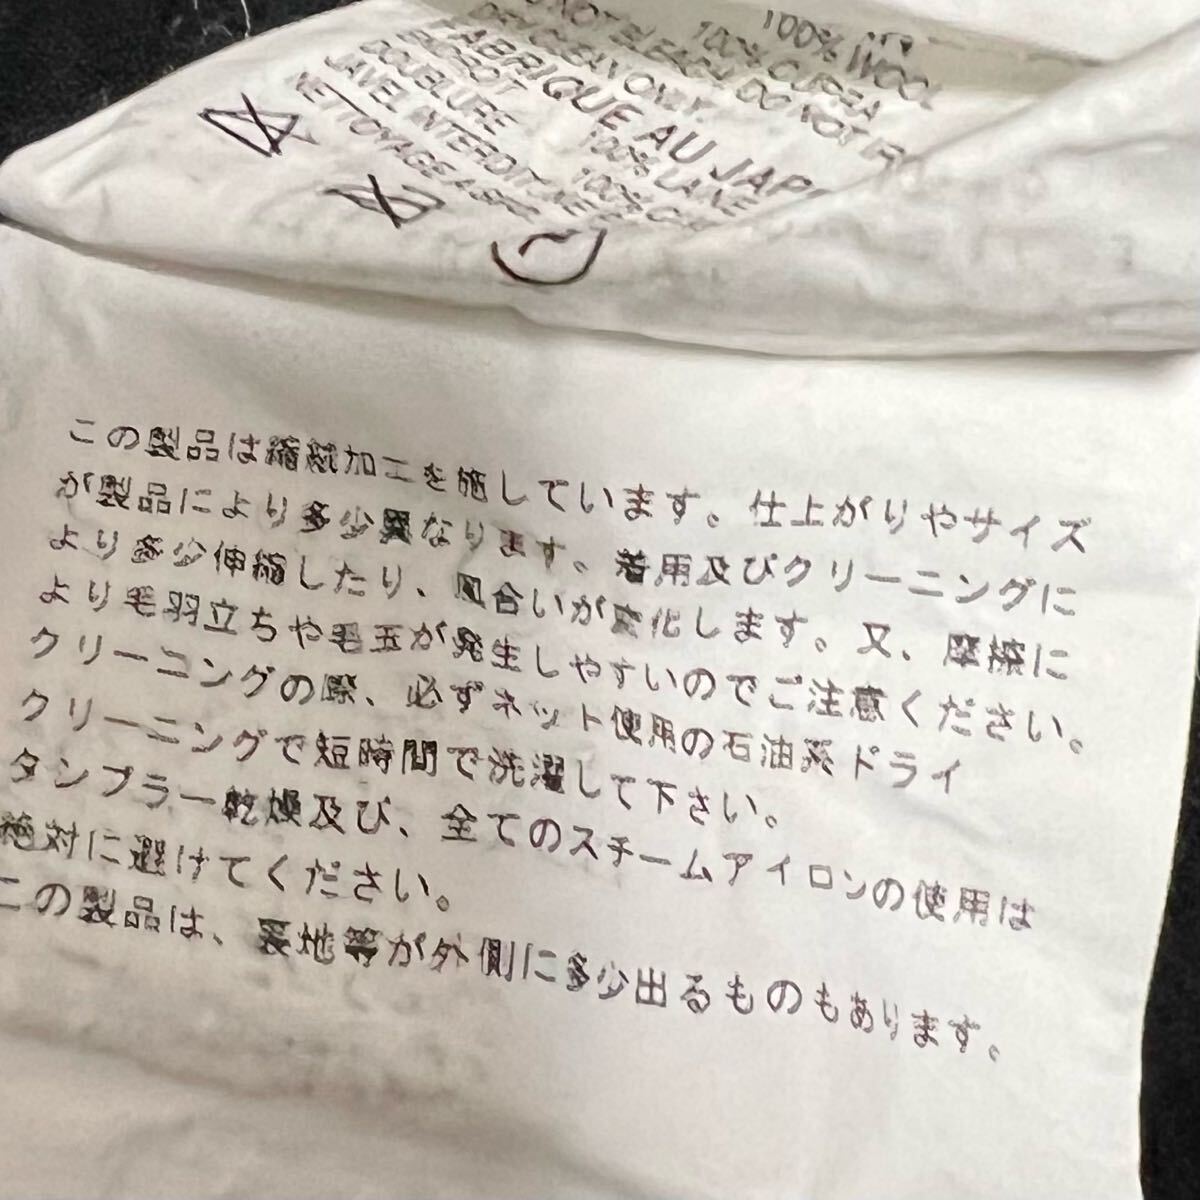 100% WOOL
100% CUPRA
NOT BLEACH, DO NOT
DRY CLEAN ONLY
FABRIQUE AU
100% LAINE
DOUBLURE 100%
JAVEL INTERDIT
NETTOYAGE A SEC
この製品は縮絨加工を施しています。仕上がりやサイズ
が製品により多少異なります。着用及びクリーニングに
より多少伸縮したり、風合いが変化します。又、摩擦に
より毛羽立ちや毛玉が発生しやすいのでご注意ください。
クリーニングの際、必ずネット使用の石油系ドライ
クリーニングで短時間で洗濯して下さい。
タンブラー乾燥及び、全てのスチームアイロンの使用は
絶対に避けてください。
この製品は、裏地等が外側に多少出るものもあります。